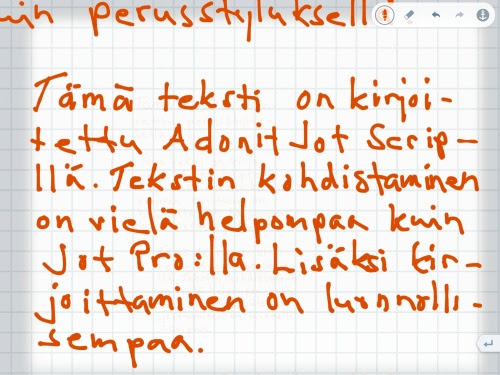 uin perusstyluksell
Tämä teksti on kirjoi-
tettu Adonit Jot Scrip-
llä. Tekstin kohdistaminen
on vielä helpompaa kuin
Jot Pro:lla. Lisäksi kir-
joittaminen on luonnolli-
sempaa.